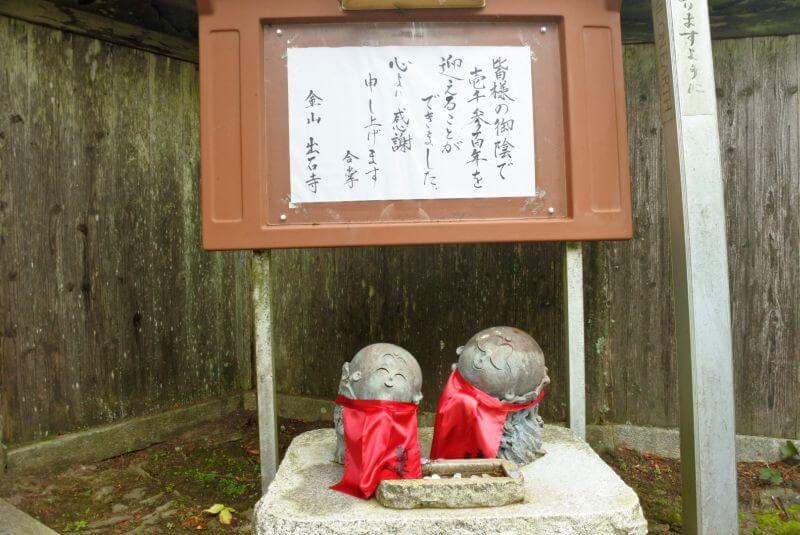 皆様の御陰で
壱千参百年を
迎えることが
できました、
心より感謝
申し上げます
合掌
金山 出石寺
りますように